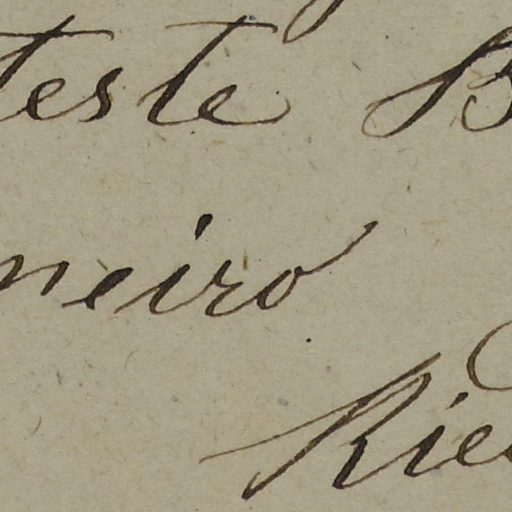 teste B
neiro
Rie